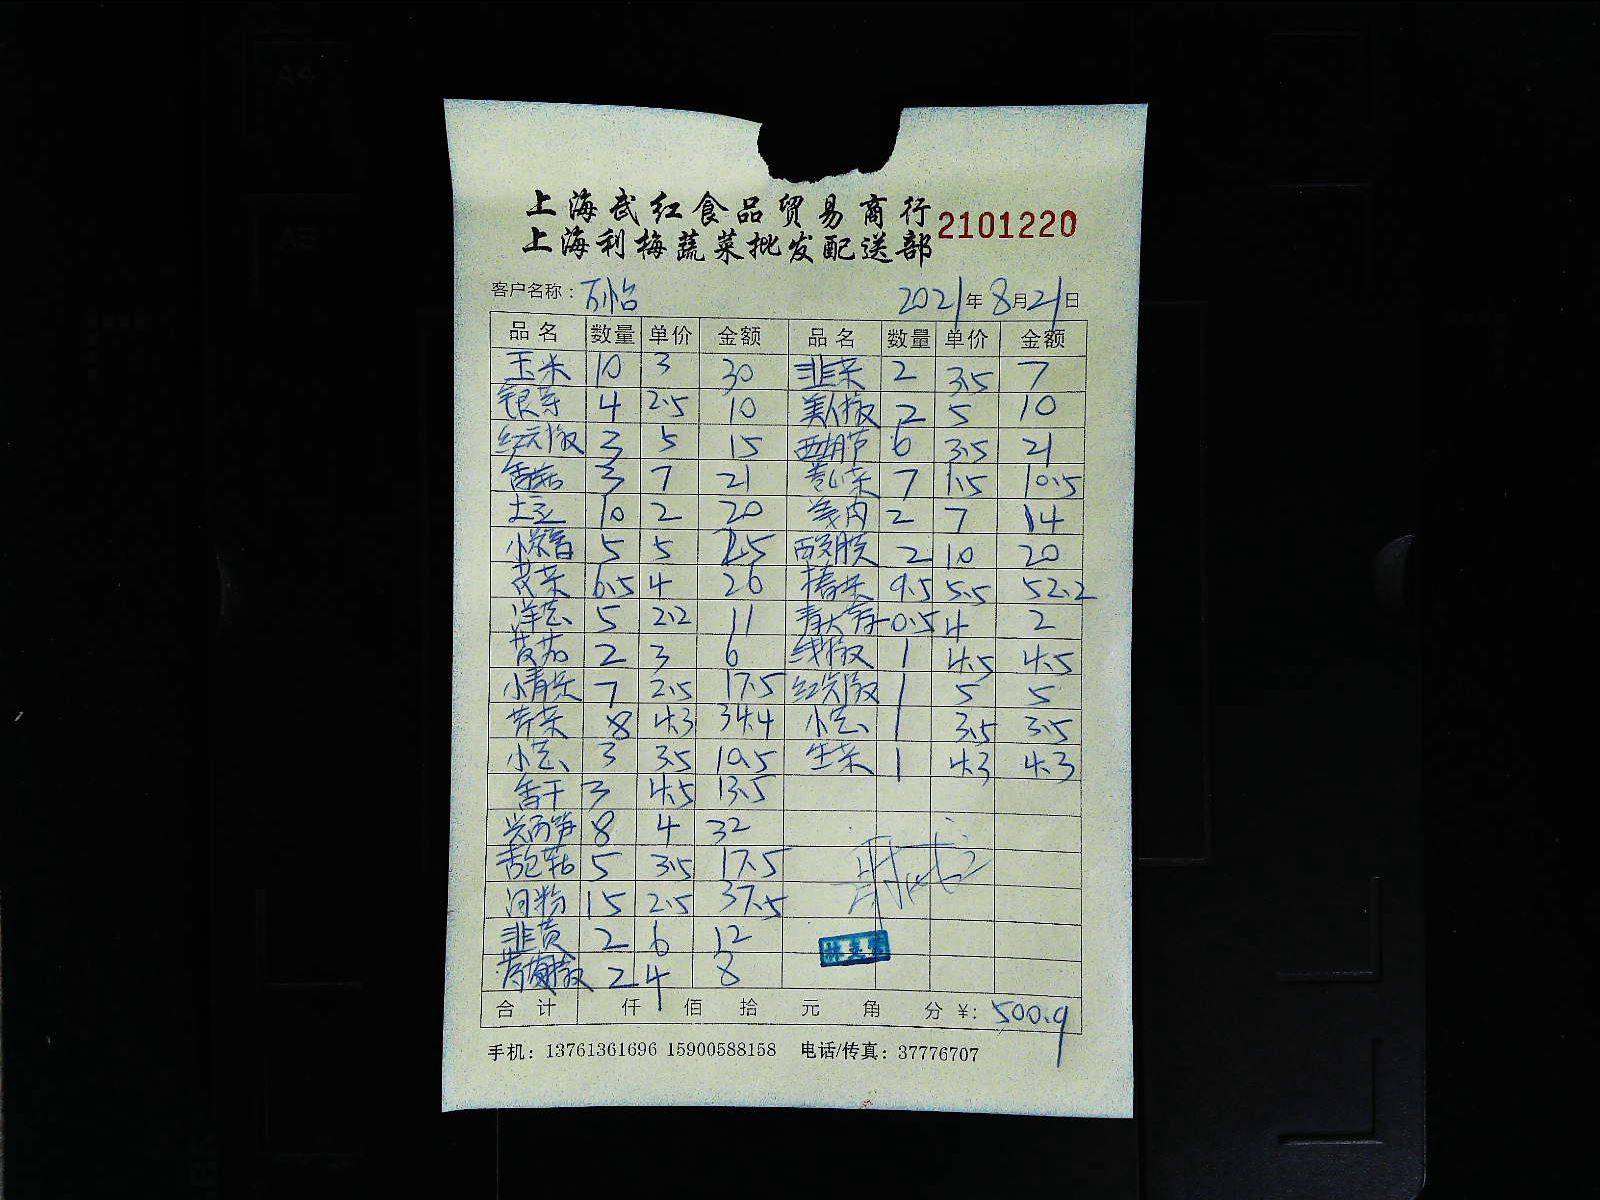 上海武红食品贸易商行
上海利梅蔬菜批发配送部
2101220
客户名称：万怡 2021年8月21日
品名 数量 单价 金额 品名 数量 单价 金额
玉米 10 3 30 韭菜 2 3.5 7
银芽 4 2.5 10 美人椒 2 5 10
红尖椒 3 5 15 西葫芦 6 3.5 21
香菇 3 7 21 卷心菜 7 1.5 10.5
土豆 10 2 20 姜肉 2 7 14
小米椒 5 5 25 2 10 20
苋菜 6.5 4 26 9.5 5.5 52.2
洋芋 5 2.2 11 青大蒜 0.5 4 2
2 3 6 线椒 1 4.5 4.5
小青菜 7 2.5 17.5 红尖椒 1 5 5
芹菜 8 4.3 34.4 小芸、 1 3.5 3.5
小芸、 3 3.5 10.5 生菜 1 4.3 4.3
香干 3 4.5 13.5
莴笋 8 4 32
杏鲍菇 5 3.5 17.5
河粉 15 2.5 37.5
韭黄 2 6 12
2 4 8
合计 仟 佰 拾 元 角 分 ¥：500.9
手机：13761361696 15900588158 电话/传真：37776707